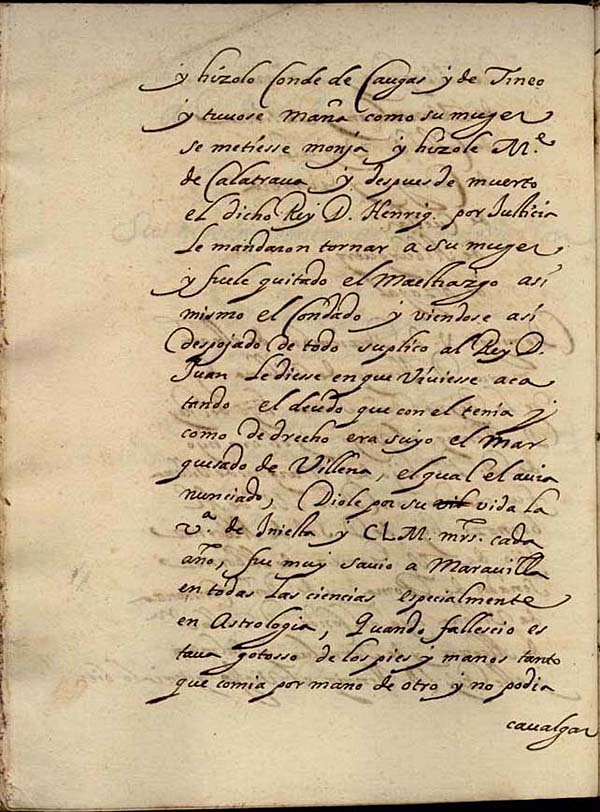 y hizolo Conde de Caugas y de Tineo
y tuvose maña como su muger
se metiesse monja y hizole M.e
de Calatraua y despues de muerto
el dicho Rey D. Henriq. por Justicia
Le mandaron tornar a su muger
y fuele quitado el Maestrazgo así
mismo el Condado y viendose así
despojado de todo suplico al Rey D.
Juan Le diesse en que viviesse aca
tando el deudo que con el tenía y
como de drecho era suyo el Mar
quesado de Villena, el qual el auia
nunciado, Diole por su vil vida la
v.a de Iniesta y CLM. mrs. cada
año, fue muy sauio a Maravilla
en todas Las ciencias especialmente
en Astrologia, Quando fallescio es
taua gotosso de los pies y manos tanto
que comia por mano de otro y no podia
caualgar